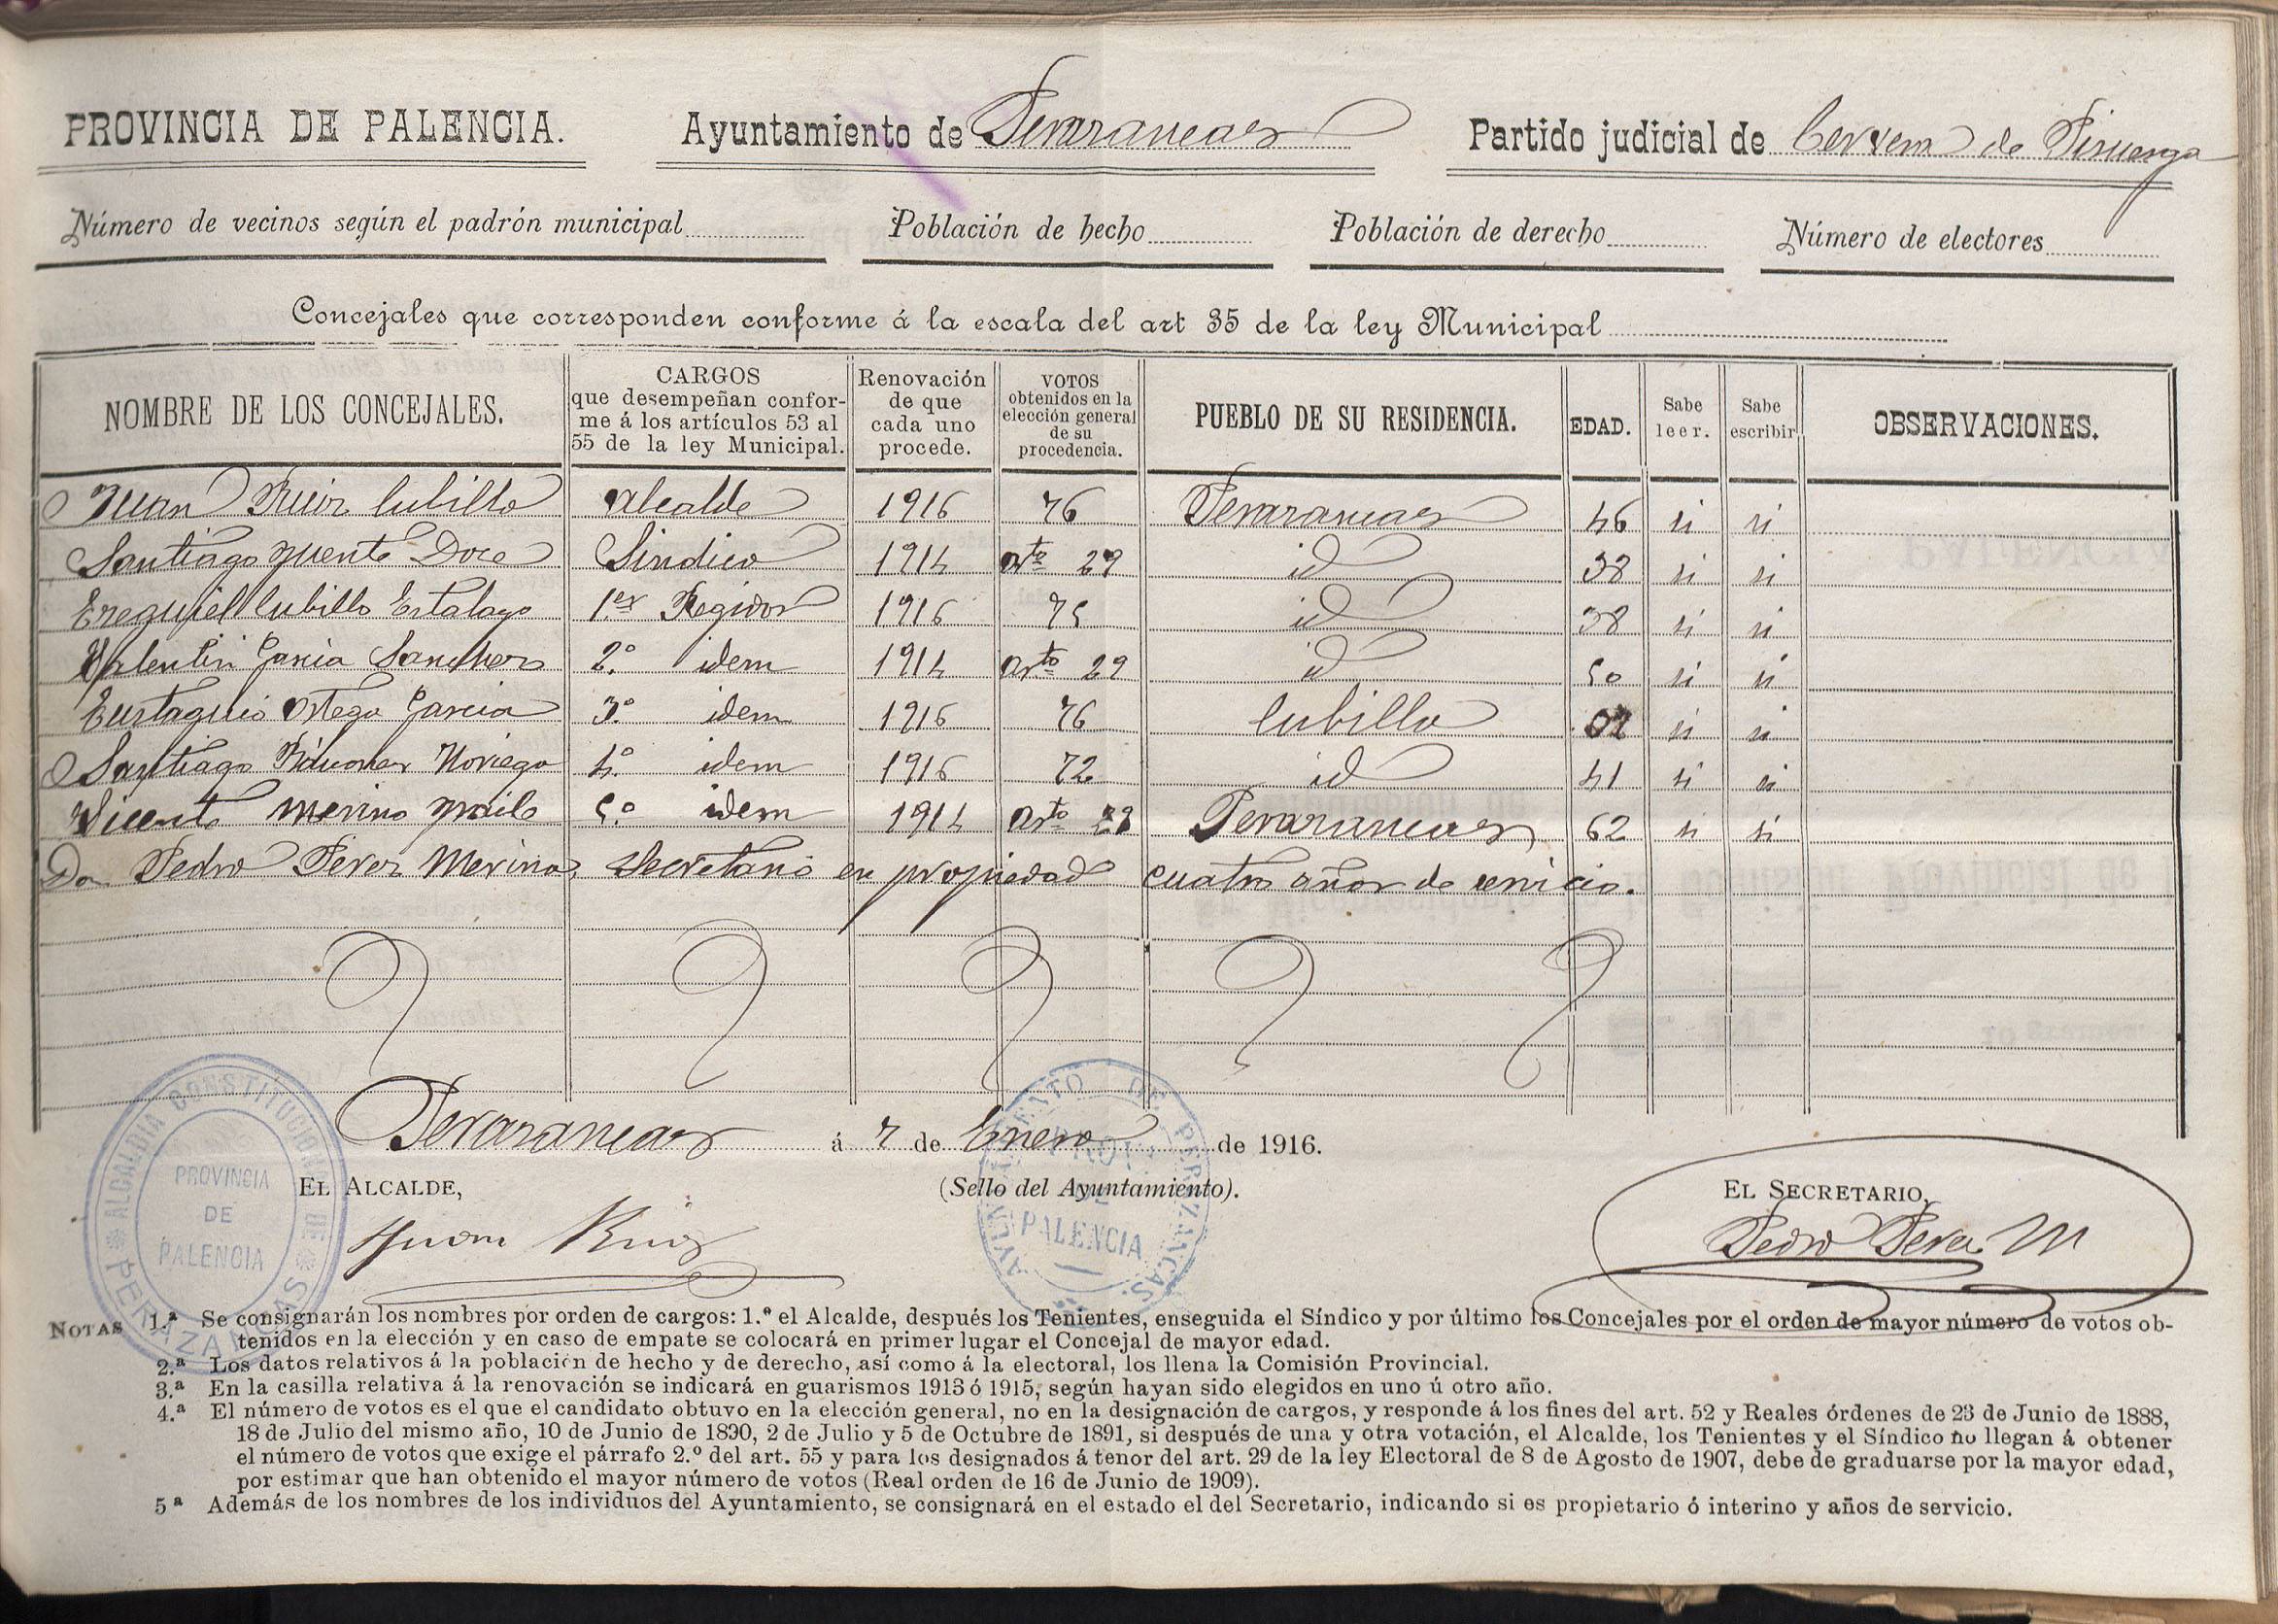 PROVINCIA DE PALENCIA. Ayuntamiento de Perazancas Partido judicial de Cervera de Pisuerga
Número de vecinos según el padrón municipal Población de hecho Población de derecho Número de electores
Concejales que corresponden conforme á la escala del art 35 de la ley Municipal
NOMBRE DE LOS CONCEJALES. CARGOS que desempeñan conforme á los artículos 53 al 55 de la ley Municipal. Renovación de que cada uno procede. VOTOS obtenidos en la elección general de su procedencia. PUEBLO DE SU RESIDENCIA. EDAD. Sabe leer. Sabe escribir OBSERVACIONES.
Juan Ruiz Cubillo Alcalde 1916 76 Perazancas 46 si si
Santiago Doce Sindico 1914 artº 29 id 38 si si
Ezequiel Cubillo 1.er Regidor 1916 75 id 38 si si
Valentin Garcia Sanchez 2.º idem 1914 artº 29 id 50 si si
Eustaquio Ortega Garcia 3.º idem 1916 76 Cubillo si si
Santiago Noriega 4.º idem 1916 72 id 41 si si
Vicente Merino 5.º idem 1914 artº 29 Perazancas 62 si si
Dn Pedro Perez Merino, Secretario en propiedad cuatro años de servicio.
Perazancas á 7 de Enero de 1916.
EL ALCALDE, (Sello del Ayuntamiento). EL SECRETARIO,
Juan Ruiz Pedro Perez M
ALCALDIA CONSTITUCIONAL DE PERAZANCAS
PROVINCIA
DE
PALENCIA
AYUNTAMIENTO DE PERAZANCAS.
PROV.
DE
PALENCIA
NOTAS 1.ª Se consignarán los nombres por orden de cargos: 1.º el Alcalde, después los Tenientes, enseguida el Síndico y por último los Concejales por el orden de mayor número de votos ob-
tenidos en la elección y en caso de empate se colocará en primer lugar el Concejal de mayor edad.
2.ª Los datos relativos á la población de hecho y de derecho, así como á la electoral, los llena la Comisión Provincial.
3.ª En la casilla relativa á la renovación se indicará en guarismos 1913 ó 1915, según hayan sido elegidos en uno ú otro año.
4.ª El número de votos es el que el candidato obtuvo en la elección general, no en la designación de cargos, y responde á los fines del art. 52 y Reales órdenes de 23 de Junio de 1888,
18 de Julio del mismo año, 10 de Junio de 1890, 2 de Julio y 5 de Octubre de 1891, si después de una y otra votación, el Alcalde, los Tenientes y el Síndico no llegan á obtener
el número de votos que exige el párrafo 2.º del art. 55 y para los designados á tenor del art. 29 de la ley Electoral de 8 de Agosto de 1907, debe de graduarse por la mayor edad,
por estimar que han obtenido el mayor número de votos (Real orden de 16 de Junio de 1909).
5ª Además de los nombres de los individuos del Ayuntamiento, se consignará en el estado el del Secretario, indicando si es propietario ó interino y años de servicio.